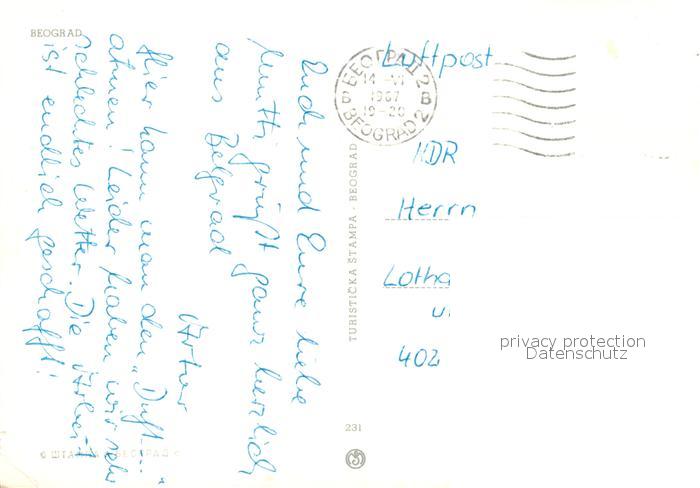 BEOGRAD
Euch und Eure liebe
Mutti grüßt ganz herzlich
aus Belgrad
Artur
Hier kann man den „Duft..."
atmen! Leider haben wir sehr
schlechtes Wetter. Die Arbeit
ist endlich geschafft!
TURISTIČKA ŠTAMPA - BEOGRAD
231
БЕОГРАД 2
14 -VI
1967
19-20
B B
BEOGRAD 2
Luftpost
DDR
Herrn
Lotha
u.
402
privacy protection
Datenschutz